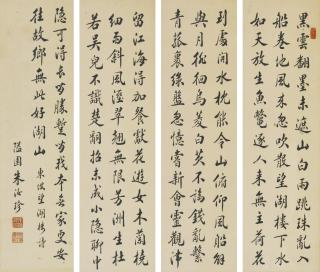 黑雲翻墨未遮山白雨跳珠亂入
船卷地風來忽吹散望湖樓下水
如天放生魚鱉逐人來無主荷花
到處開水枕能令山俯仰風船解
與月徘徊烏菱白芡不論錢亂繫
青菰裹綠盤忽憶嘗新會靈觀滯
留江海得加餐獻花遊女木蘭橈
細雨斜風溼翠翹無限芳洲生杜
若吳兒不識楚辭招未成小隱聊中
隱可得長閒勝暫閒我本無家更安
往故鄉無此好湖山 東坡望湖樓詩
隘園朱汝珍